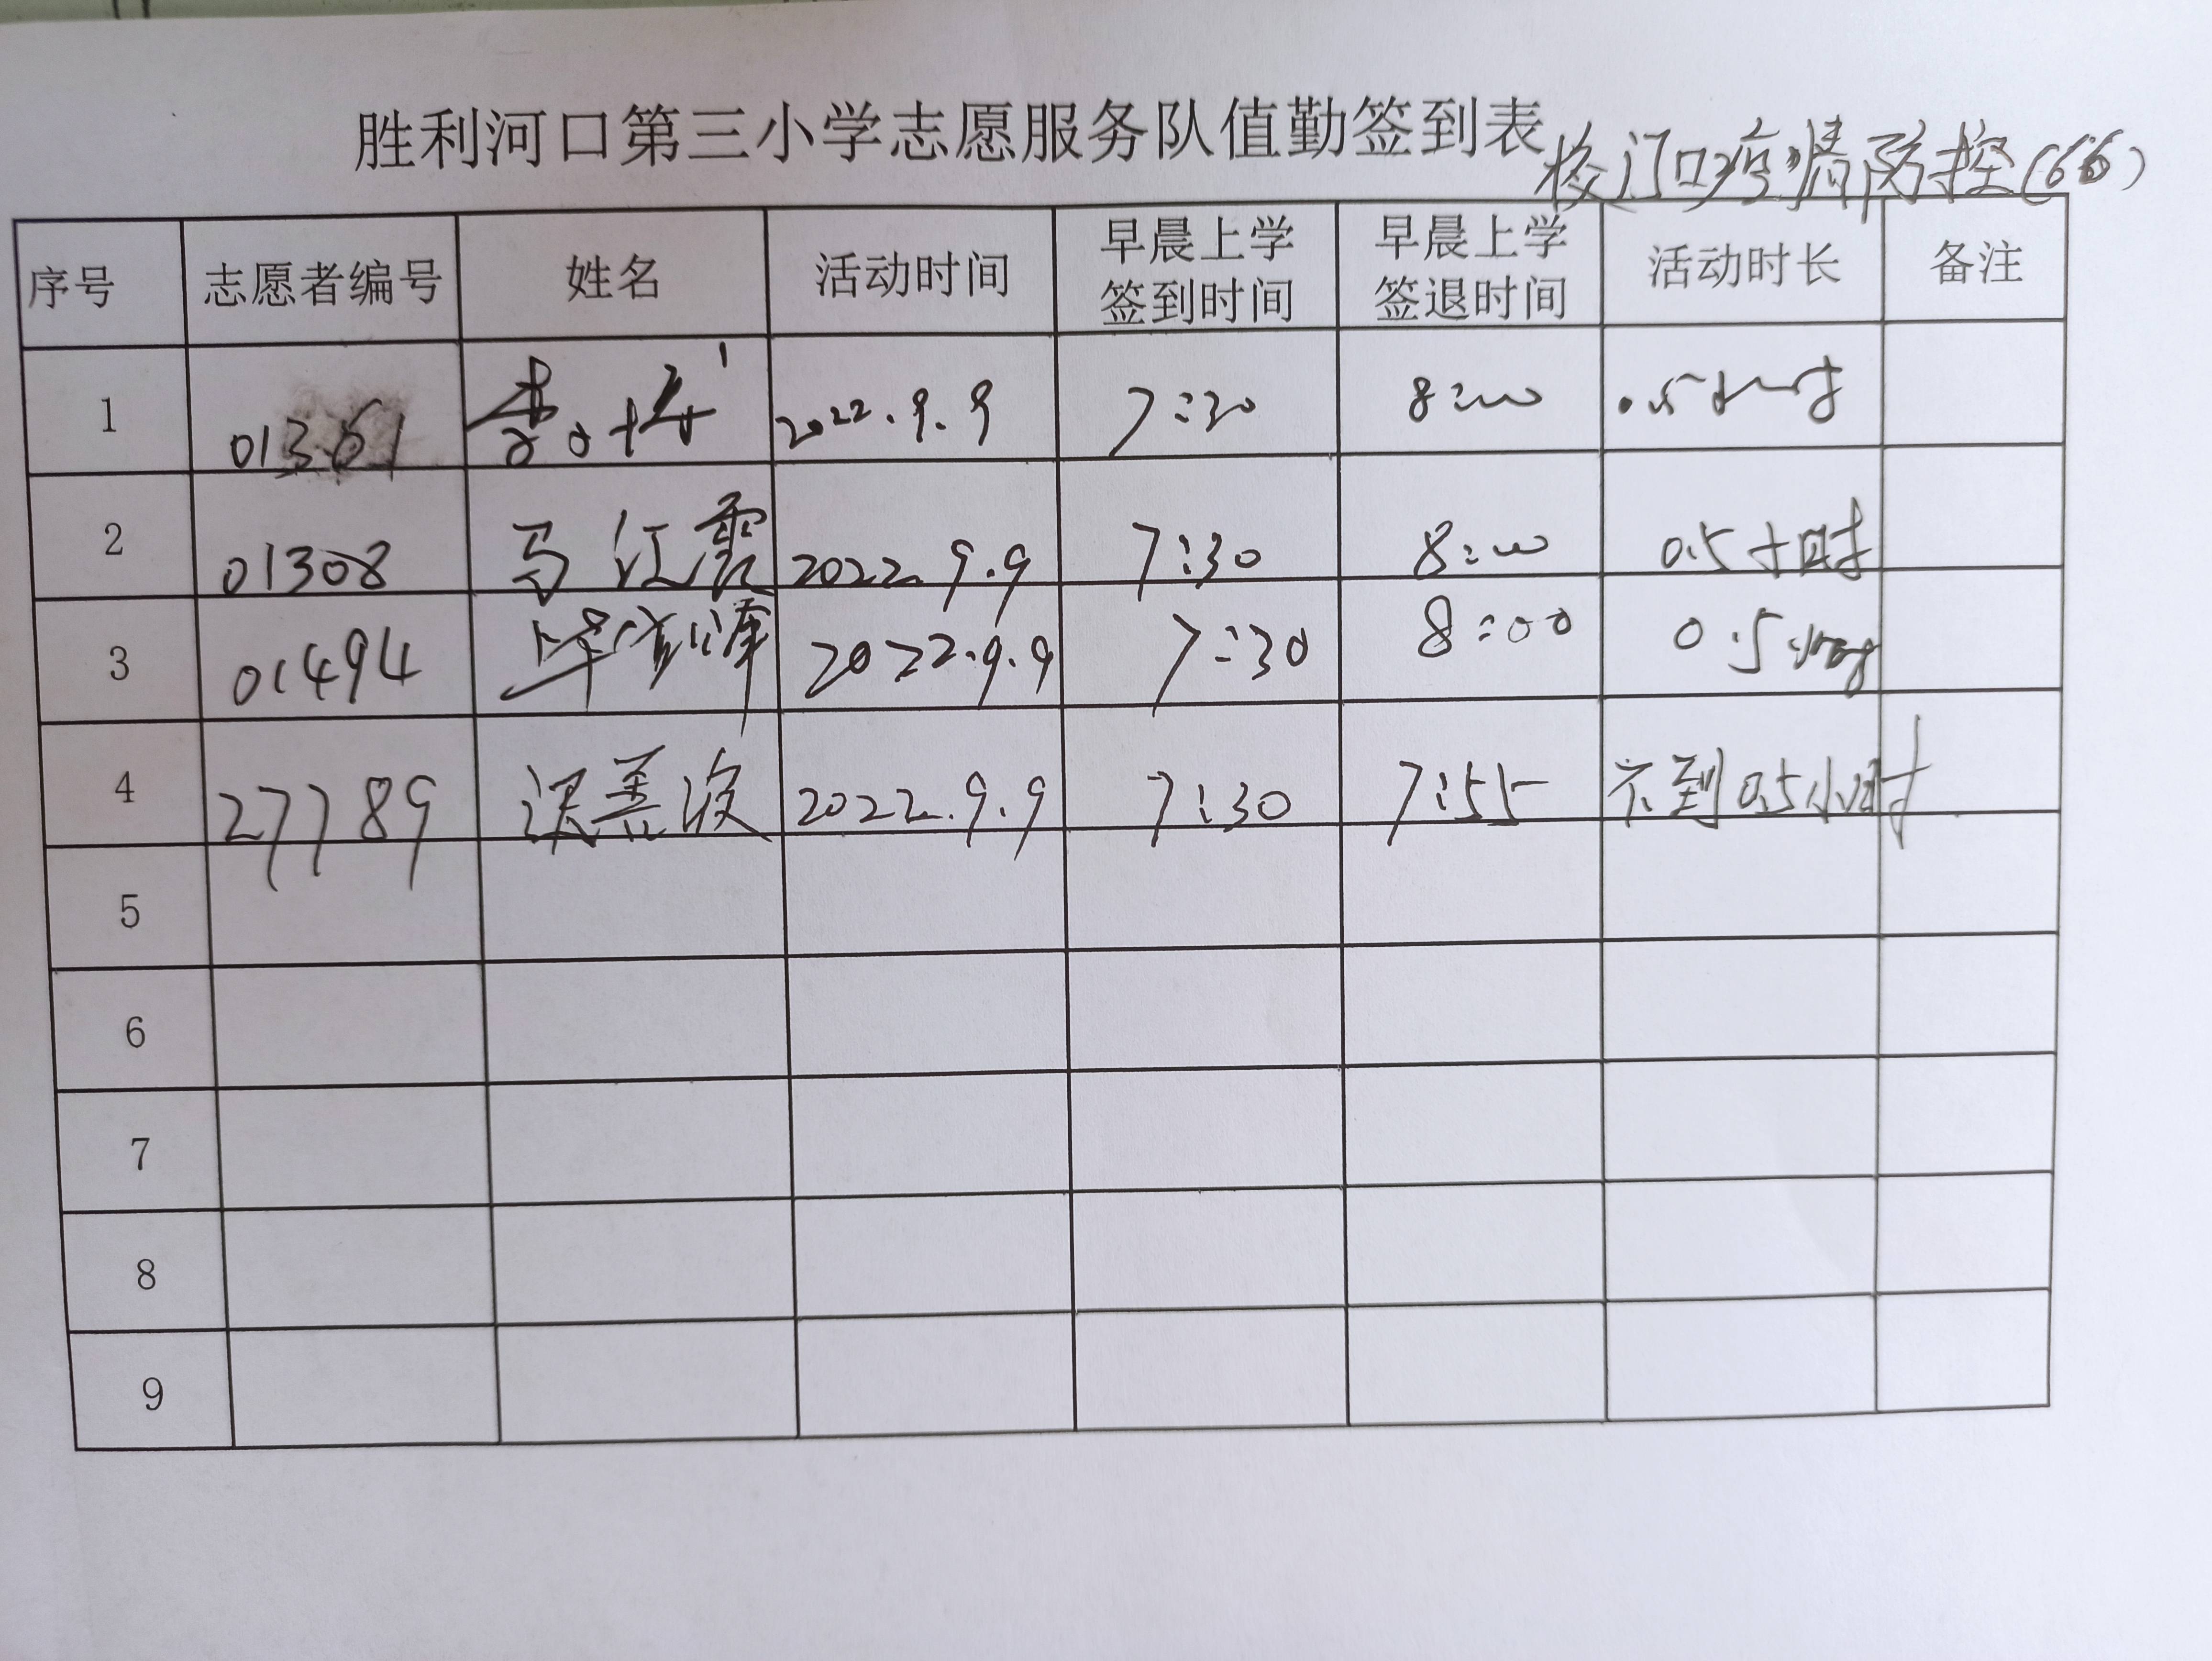 胜利河口第三小学志愿服务队值勤签到表 校门口疫情防控(66)
序号 志愿者编号 姓名 活动时间 早晨上学签到时间 早晨上学签退时间 活动时长 备注
1 01361 2022.9.9 7:30 8:00 0.5小时
2 01308 马红霞 2022.9.9 7:30 8:00 0.5小时
3 01494 毕 2022.9.9 7:30 8:00 0.5小时
4 27789 2022.9.9 7:30 7:55 不到0.5小时
5
6
7
8
9